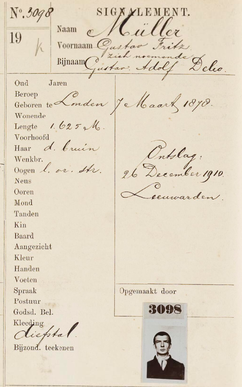 No. 3098
SIGNALEMENT.
19
Naam Müller
Voornaam Gustav Fritz
zich noemende
Bijnaam Gustav Adolf
Oud Jaren
Beroep
Geboren te Londen 7 Maart 1878.
Wonende
Lengte 1.625 M.
Voorhoofd
Haar d. bruin
Wenkbr.
Oogen
Neus
Ooren
Mond
Tanden
Kin
Baard
Aangezicht
Kleur
Handen
Voeten
Spraak
Postuur
Godsd. Bel.
Kleeding
diefstal
Bijzond. teekenen
Ontslag,
26 December 1910.
Leeuwarden.
Opgemaakt door
3098